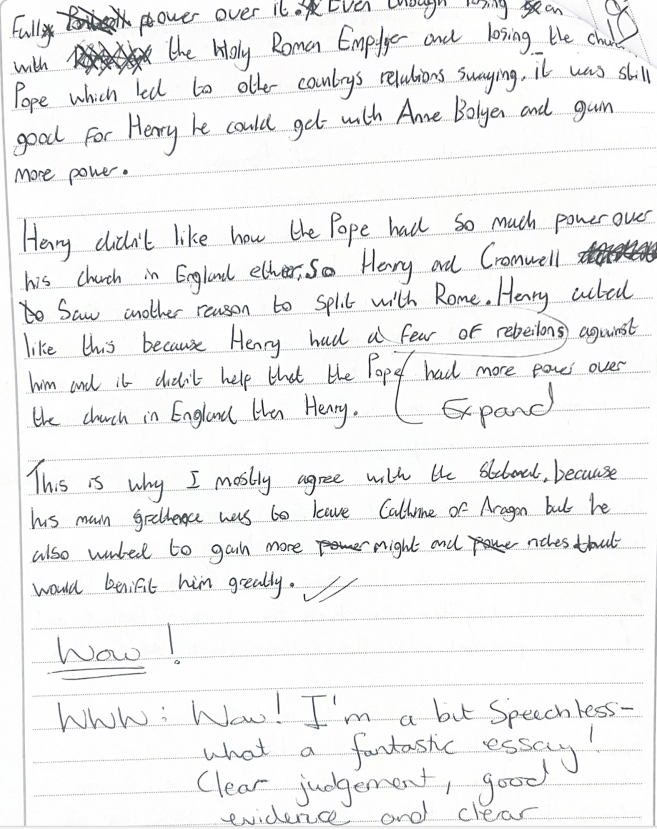 Fully power over it. Even though losing an
with the Holy Roman Empijer and losing the
Pope which led to other countrys relations swaying, it was still
good for Henry he could get with Anne Bolyen and gain
more power.
Henry didn't like how the Pope had so much power over
his church in England either, So Henry and Cromwell
to Saw another reason to split with Rome. Henry acted
like this because Henry had a fear of rebeilons against
him and it didn't help that the Pope had more power over
the church in England then Henry.
Expand
This is why I mostly agree with the because
his main was to leave Cathrine of Aragon but he
also wanted to gain more power might and power riches that
would benifit him greatly.
Wow!
WWW: Wow! I'm a bit Speechless-
what a fantastic essay!
Clear judgement, good
evidence and clear